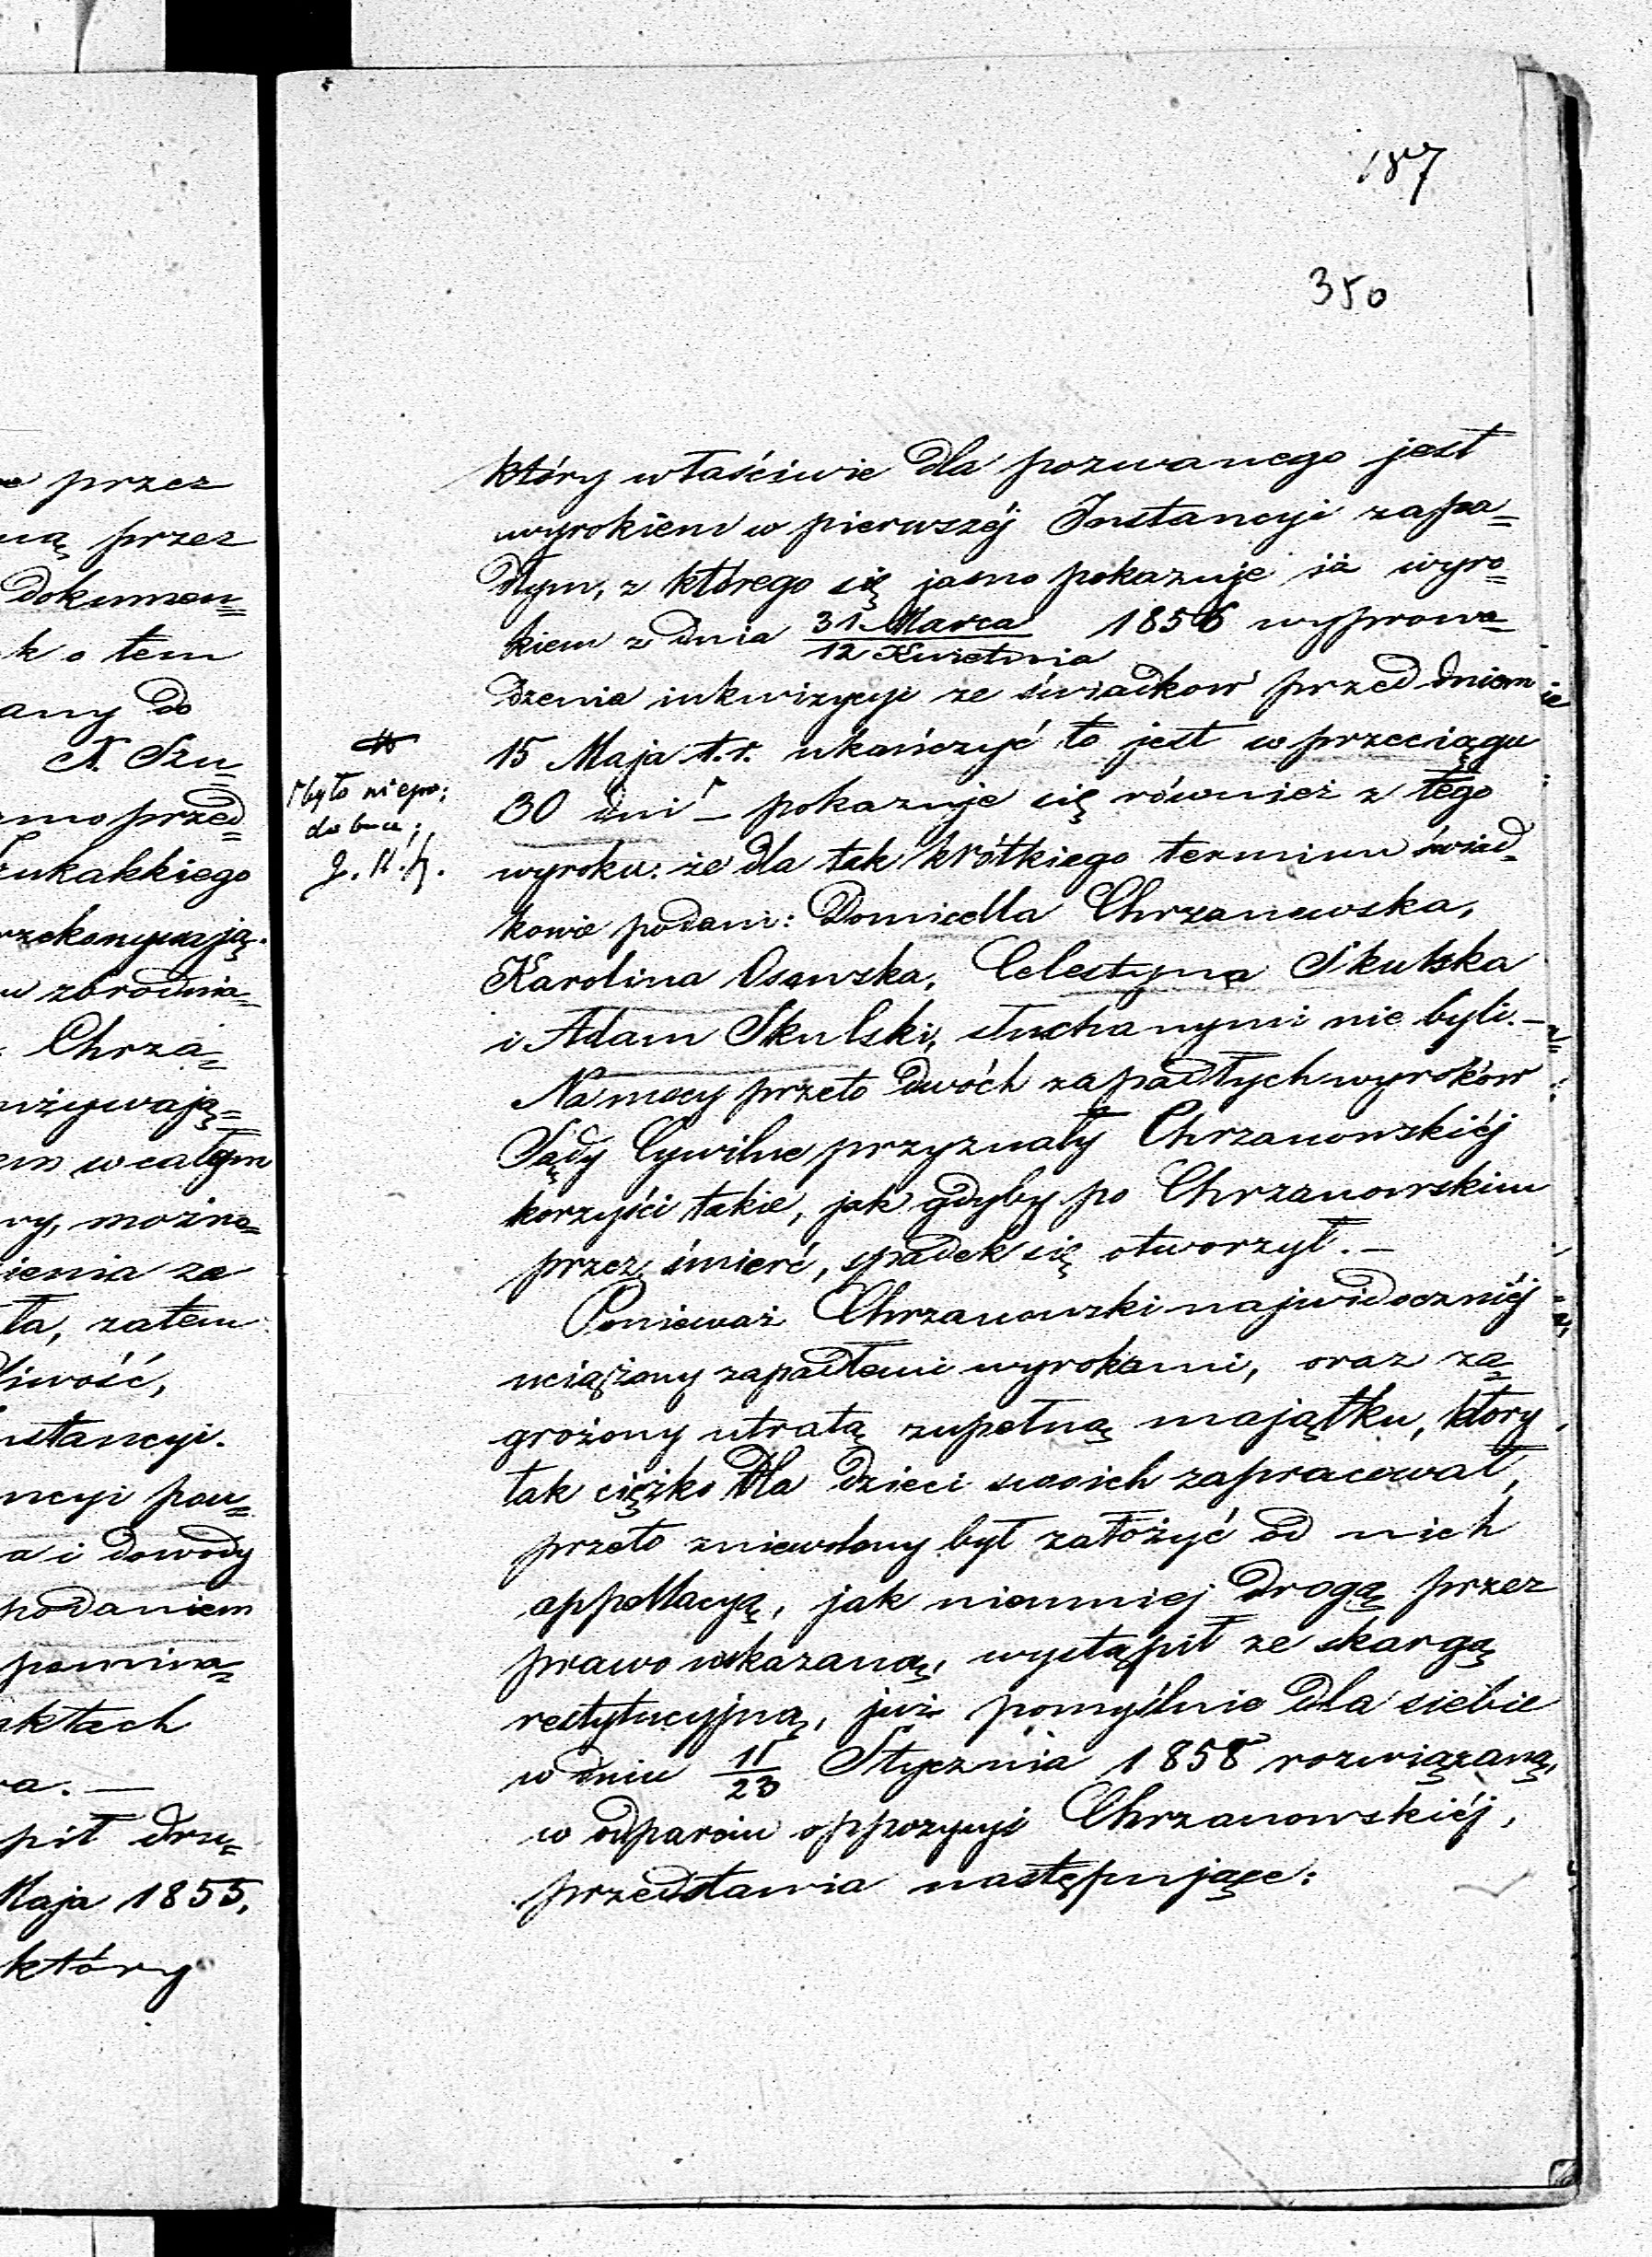 187
350
przez
przez
Dokumen=
k o tem
any do
N. Szu=
przed=
Chrza=
w całym
ienia za
ła, zatem
liwość,
nstancyi.
ncyi pou=
a i dowody
podaniem
aktach
pił dru=
Maja 1855,
który
było niepo;
dobna;
który właściwie dla pozwanego jest
wyrokiem w pierwszéj Instancyi zapa=
dłym, z którego się jasno pokazuje iż wyro=
kiem z dnia 31 Marca / 12 Kwietnia 1856 wyprowa=
dzenia inkwizycyi ze świadkow przed dniem
15 Maja t.r. ukończyć to jest w przeciągu
30 dni – pokazuje się również z tégo
wyroku: że dla tak krótkiego terminu świad=
kowie podani: Domicella Chrzanowska,
Karolina Osowska, Celestyna Skulska
i Adam Skulski, słuchanymi nie byli. –
Na mocy przeto dwóch zapadłych wyroków
Sądy Cywilne przyznały Chrzanowskiéj
korzyści takie, jak gdyby po Chrzanowskim
przez śmierć, spadek się otworzył. –
Ponieważ Chrzanowski najwidoczniéj
uciążony zapadłemi wyrokami, oraz za=
grożony utratą zupełną majątku, ktory
tak ciężko dla dzieci swoich zapracował,
przeto zniewolony był założyć od nich
appellacyą, jak niemniej drogą przez
prawo wskazaną, wystąpił ze skargą
restytucyjną, już pomyślnie dla siebie
w dniu 11/23 Stycznia 1858 rozwiązaną,
w odparciu oppozycyi Chrzanowskiéj,
przedstawia następujące: